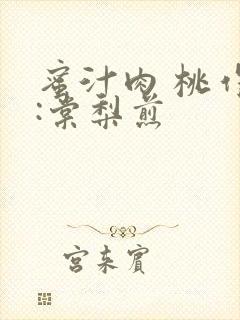 蜜汁肉桃作
:棠梨煎
宫来宾